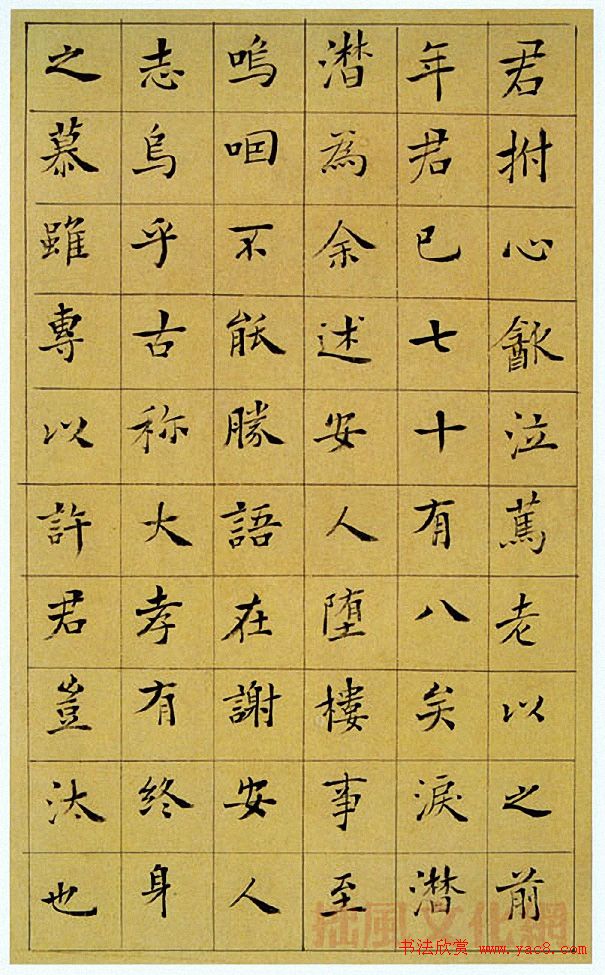 君拊心歠泣篤老以之前
年君已七十有八矣淚潜
潜為余述安人堕樓事至
嗚咽不能勝語在謝安人
志烏乎古称大孝有終身
之慕雖專以許君豈汰也
书法欣赏 www.yac8.com